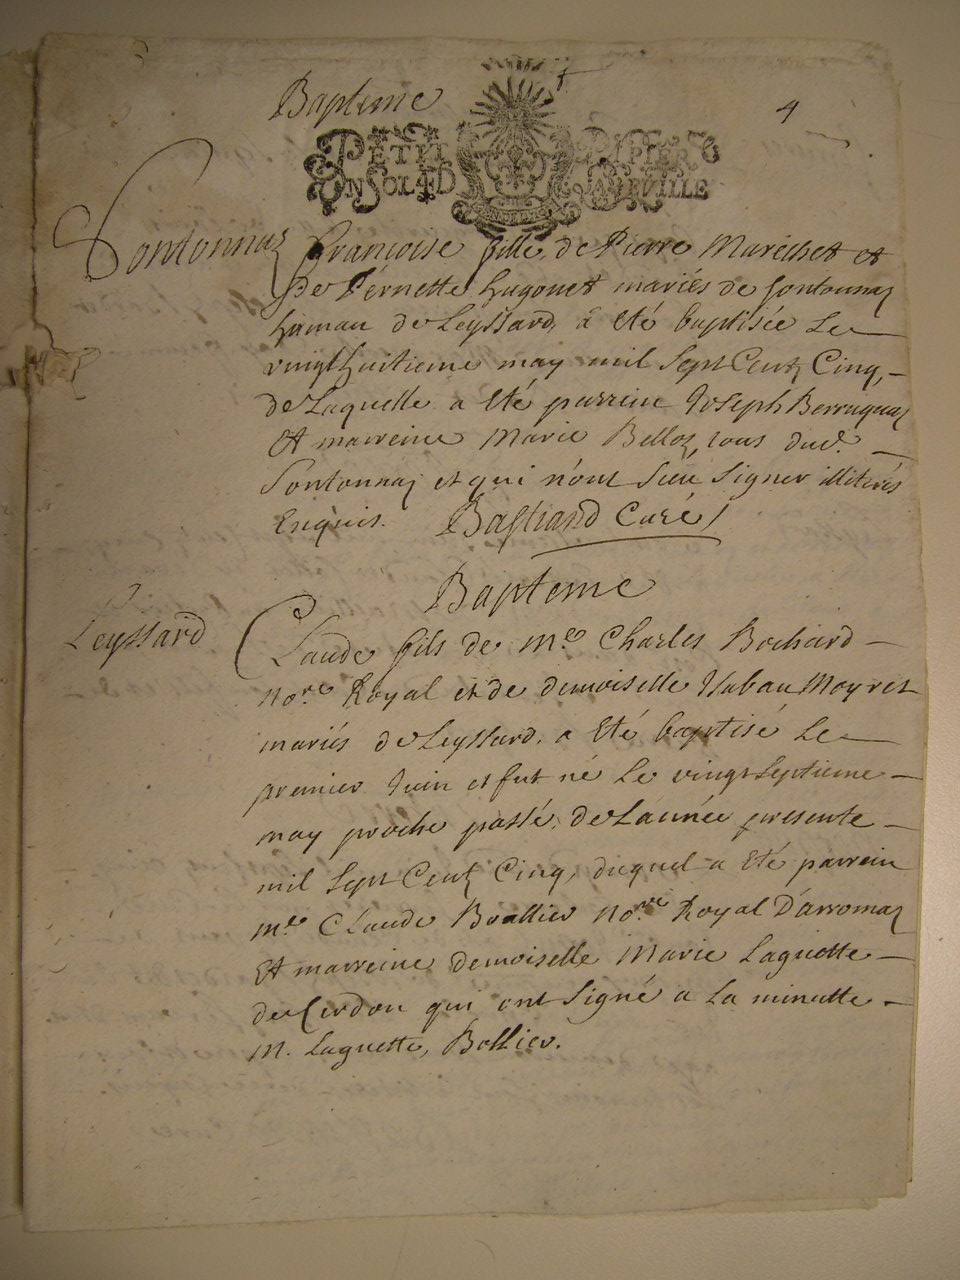 Bapteme
4
PETIT PAPIER
UN SOL 4 D LA FEUILLE
Sontonnaz
Françoise fille de Pierre Marechet et
de Pernette hugonet mariés de Sontonnaz
hamau de Leyssard, a été baptisée Le
vingthuitieme may mil Sept Centz Cinq,
de Laquelle a été parrein Joseph Berruquaz
et marreine Marie Belloz, tous dud.
Sontonnaz et qui n'ont Sceu Signer illiterés
Enquis. Bastiand Curé
Bapteme
Leyssard
Claude fils de Me. Charles Bochard
nore. Royal et de demoiselle Isabau Moyret
mariés de Leyssard, a été baptisé Le
premier Juin et fut né Le vingtseptieme
may proche passé, de L'année presente
mil Sept Centz Cinq, duquel a été parrein
me. Claude Bollier nore. Royal D'arromaz
et marreine demoiselle Marie Laguette
de Cerdon qui ont Signé a La minutte
M. Laguette, Bollier.